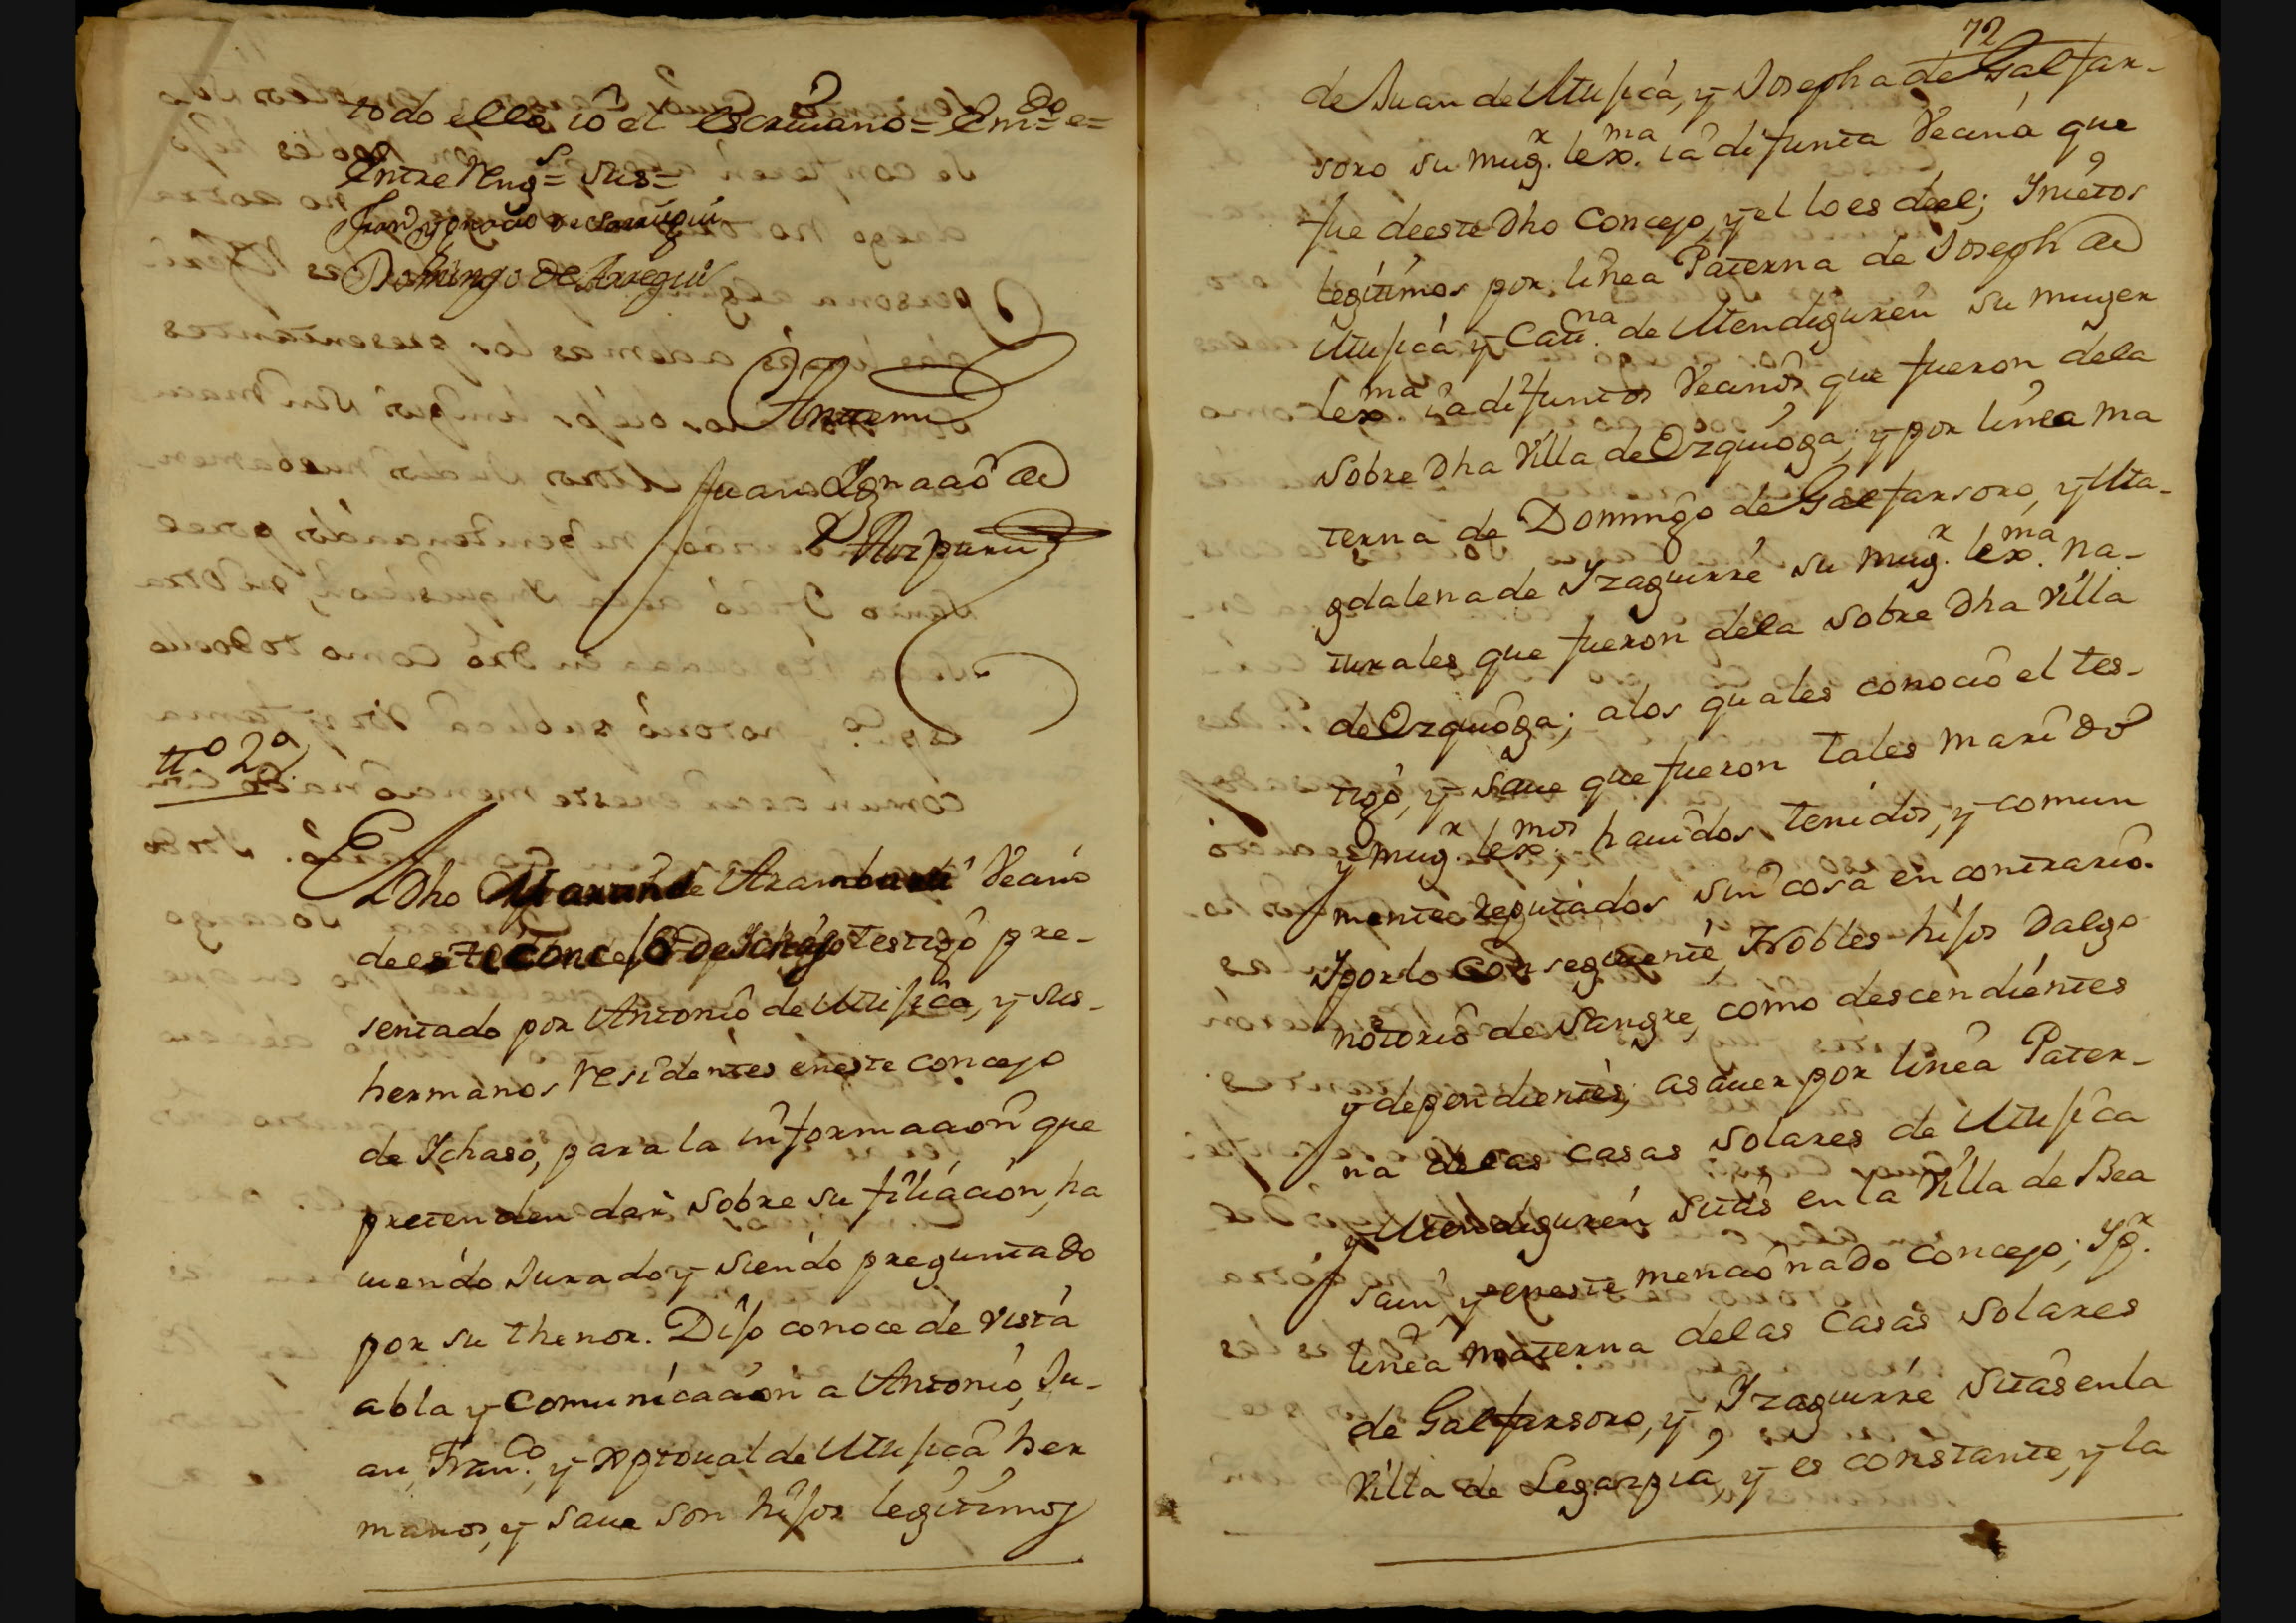 todo ello io el escriuano = Em.do = e =
Entre Reng.s = sus =
Domingo de Arregui
Antemi
Juan Ygnacio de
Aizpuru
tt.o 2.o
El Dho Martin de Aramburu Vecino
de este Concejo de Ichaso testigo pre-
sentado por Antonio de Utusica, y sus
hermanos residentes eneste concejo
de Ichaso, para la informacion que
pretenden dar sobre su filiacion, ha
uiendo Jurado y siendo preguntado
por su thenor. Dijo conoce de vista
abla y comunicacion a Antonio, Ju-
an, Fran.co, y Xptoual de Utusica her
manos, y saue son hijos legitimos
72
de Juan de Utusica, y Josepha de Galfar-
soro su mug.r lex.ma ia difunta Vecina que
fue deeste Dho Concejo, y el lo es deel; Y nietos
legitimos por linea Paterna de Joseph de
Utusica y Cat.na de Mendiguren su muger
lex.ma ia difuntos Vecinos que fueron dela
sobre Dha Villa de Ozquioga; y por linea ma
terna de Domingo de Galfarsoro, y Ma-
gdalena de Yzaguirre su mug.r lex.ma na-
turales que fueron dela sobre Dha Villa
de Ozquioga; alos quales conocio el tes-
tigo, y saue que fueron tales marido
y mug.r lex.mos hauidos, tenidos, y comun
mente reputados sin cosa en contrario.
Y por lo conseguiente, Nobles hijos Dalgo
notorio de sangre, como descendientes
y dependientes; asauer por linea Pater-
na delas casas solares de Utusica
y Mendiguren sitas en la Villa de Bea
sain, y eneste mencionado concejo; Y p.r
linea materna delas Casas solares
de Galfarsoro, y Yzaguirre sitas enla
Villa de Legazpia, y es constante, y la